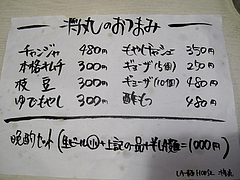 判丸のおつまみ
チャンジャ 480円
本格キムチ 300円
枝豆 300円
ゆでもやし 300円
もやしチャーシュー 350円
ギョーザ(5個) 250円
ギョーザ(10個) 480円
酢もつ 480円
晩酌セット(生ビール(小)+上記の一品+半らぁ麺=1000円)